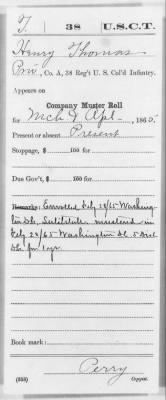 T. | 38 | U.S.C.T.
Henry Thomas
Priv, Co. A, 38 Reg't U.S. Col'd Infantry.
Appears on
Company Muster Roll
for Mch & Apl, 1865.
Present or absent Present
Stoppage, $ 100 for
Due Gov't, $ 100 for
Remarks: Enrolled Feby 28/65 Washing-
ton D.C. Substitute in
Feby 28/65 Washington DC 5 Dist
for 1 yr.
Book mark:
Perry
(358) Copyist.